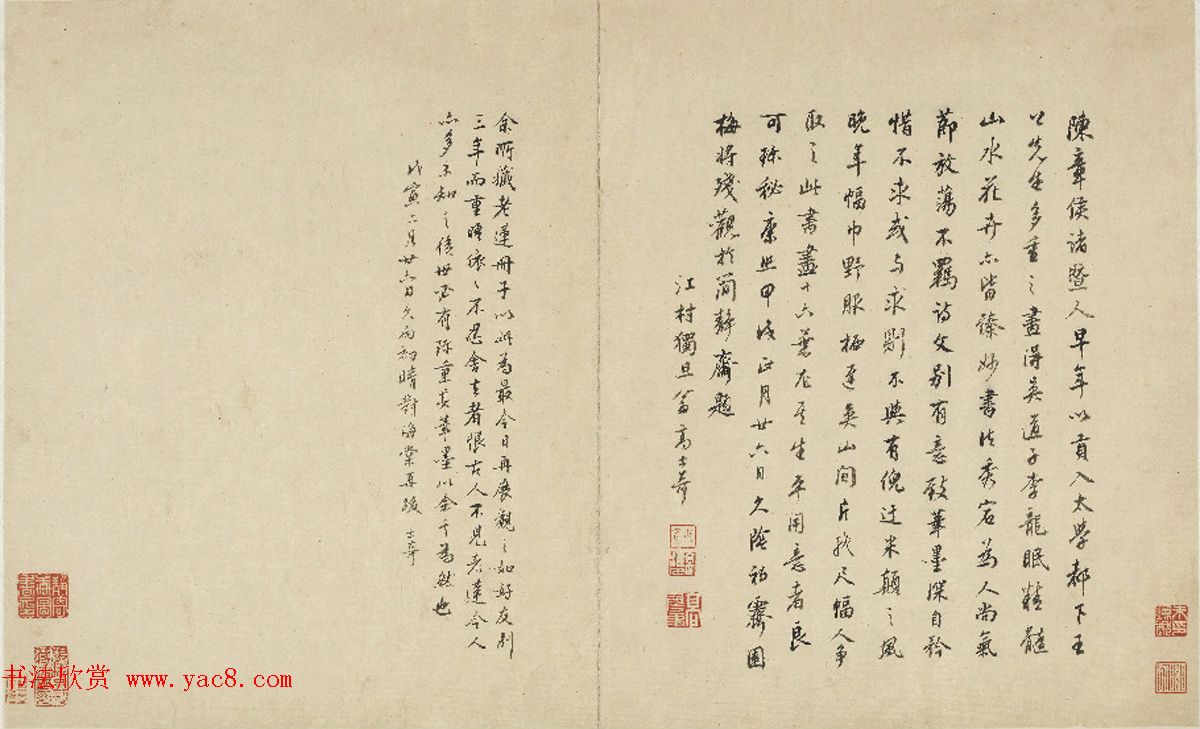 陳章侯諸暨人早年以貢入太學都下王
公先生多重之畫得吳道子李龍眠精髓
山水花卉亦皆臻妙書法秀宕為人尚氣
節放蕩不羈詩文別有意致筆墨深自矜
惜不求或與求剧不與有倪迂米顛之風
晚年幅巾野服栖遲吳山間片紙尺幅人争
取之此書畫十六葉尤其生平用意者良
可珎秘康熙甲戌正月廿六日久陰初霽園
梅将殘觀於簡靜齋題
江村獨旦翁高士奇
余所藏老蓮冊子以此為最今日再展觀之如好友別
三年而重晤依依不忍舍去者恨古人不見老蓮今人
亦多不知之後世必有珎重其筆墨以余言為然也
戊寅二月廿六日久雨初晴對海棠再跋 士奇
书法欣赏 www.yac8.com